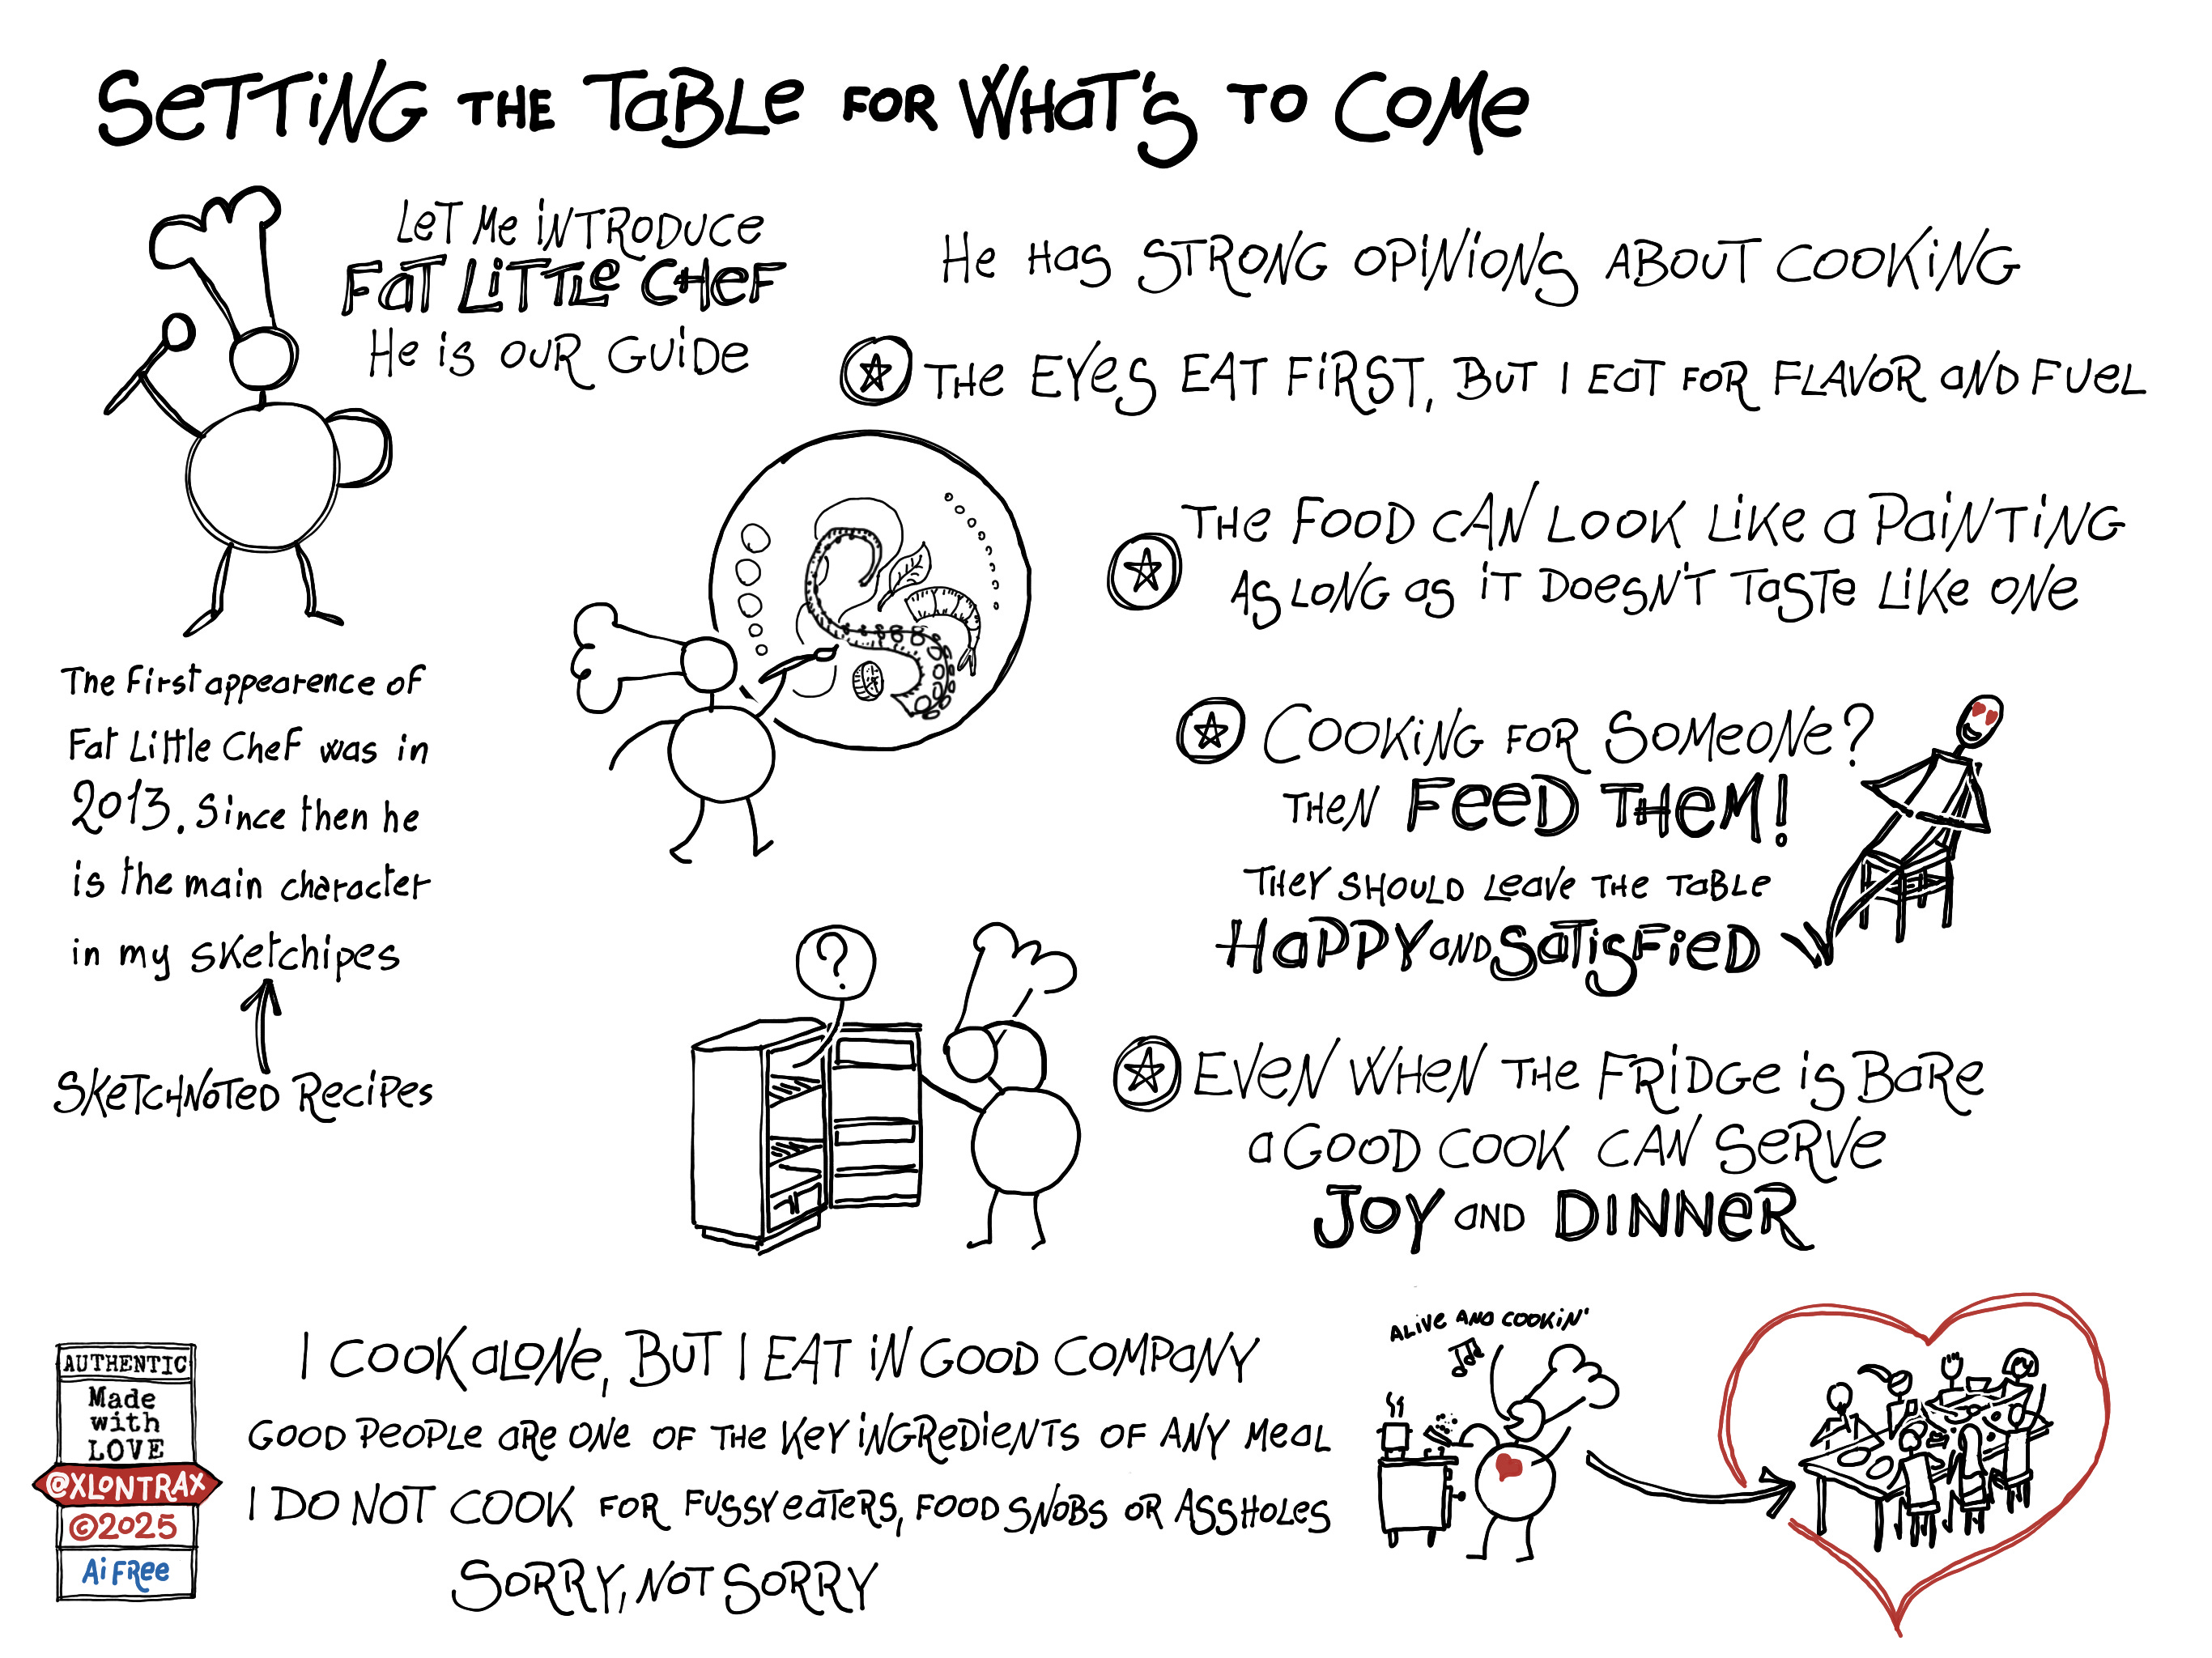 SETTING THE TABLE FOR WHAT'S TO COME
LET ME INTRODUCE
FAT LITTLE CHEF
HE IS OUR GUIDE
The first appearence of
Fat Little Chef was in
2013. Since then he
is the main character
in my sketchipes
SKETCHNOTED RECIPES
HE HAS STRONG OPINIONS ABOUT COOKING
THE EYES EAT FIRST, BUT I EAT FOR FLAVOR AND FUEL
THE FOOD CAN LOOK LIKE A PAINTING
AS LONG AS IT DOESN'T TASTE LIKE ONE
COOKING FOR SOMEONE?
THEN FEED THEM!
THEY SHOULD LEAVE THE TABLE
HAPPY AND SATISFIED
?
EVEN WHEN THE FRIDGE IS BARE
A GOOD COOK CAN SERVE
JOY AND DINNER
I COOK ALONE, BUT I EAT IN GOOD COMPANY
GOOD PEOPLE ARE ONE OF THE KEY INGREDIENTS OF ANY MEAL
I DO NOT COOK FOR FUSSY EATERS, FOOD SNOBS OR ASSHOLES
SORRY, NOT SORRY
ALIVE AND COOKIN'
AUTHENTIC
Made
with
LOVE
@XLONTRAX
©2025
Ai FREE